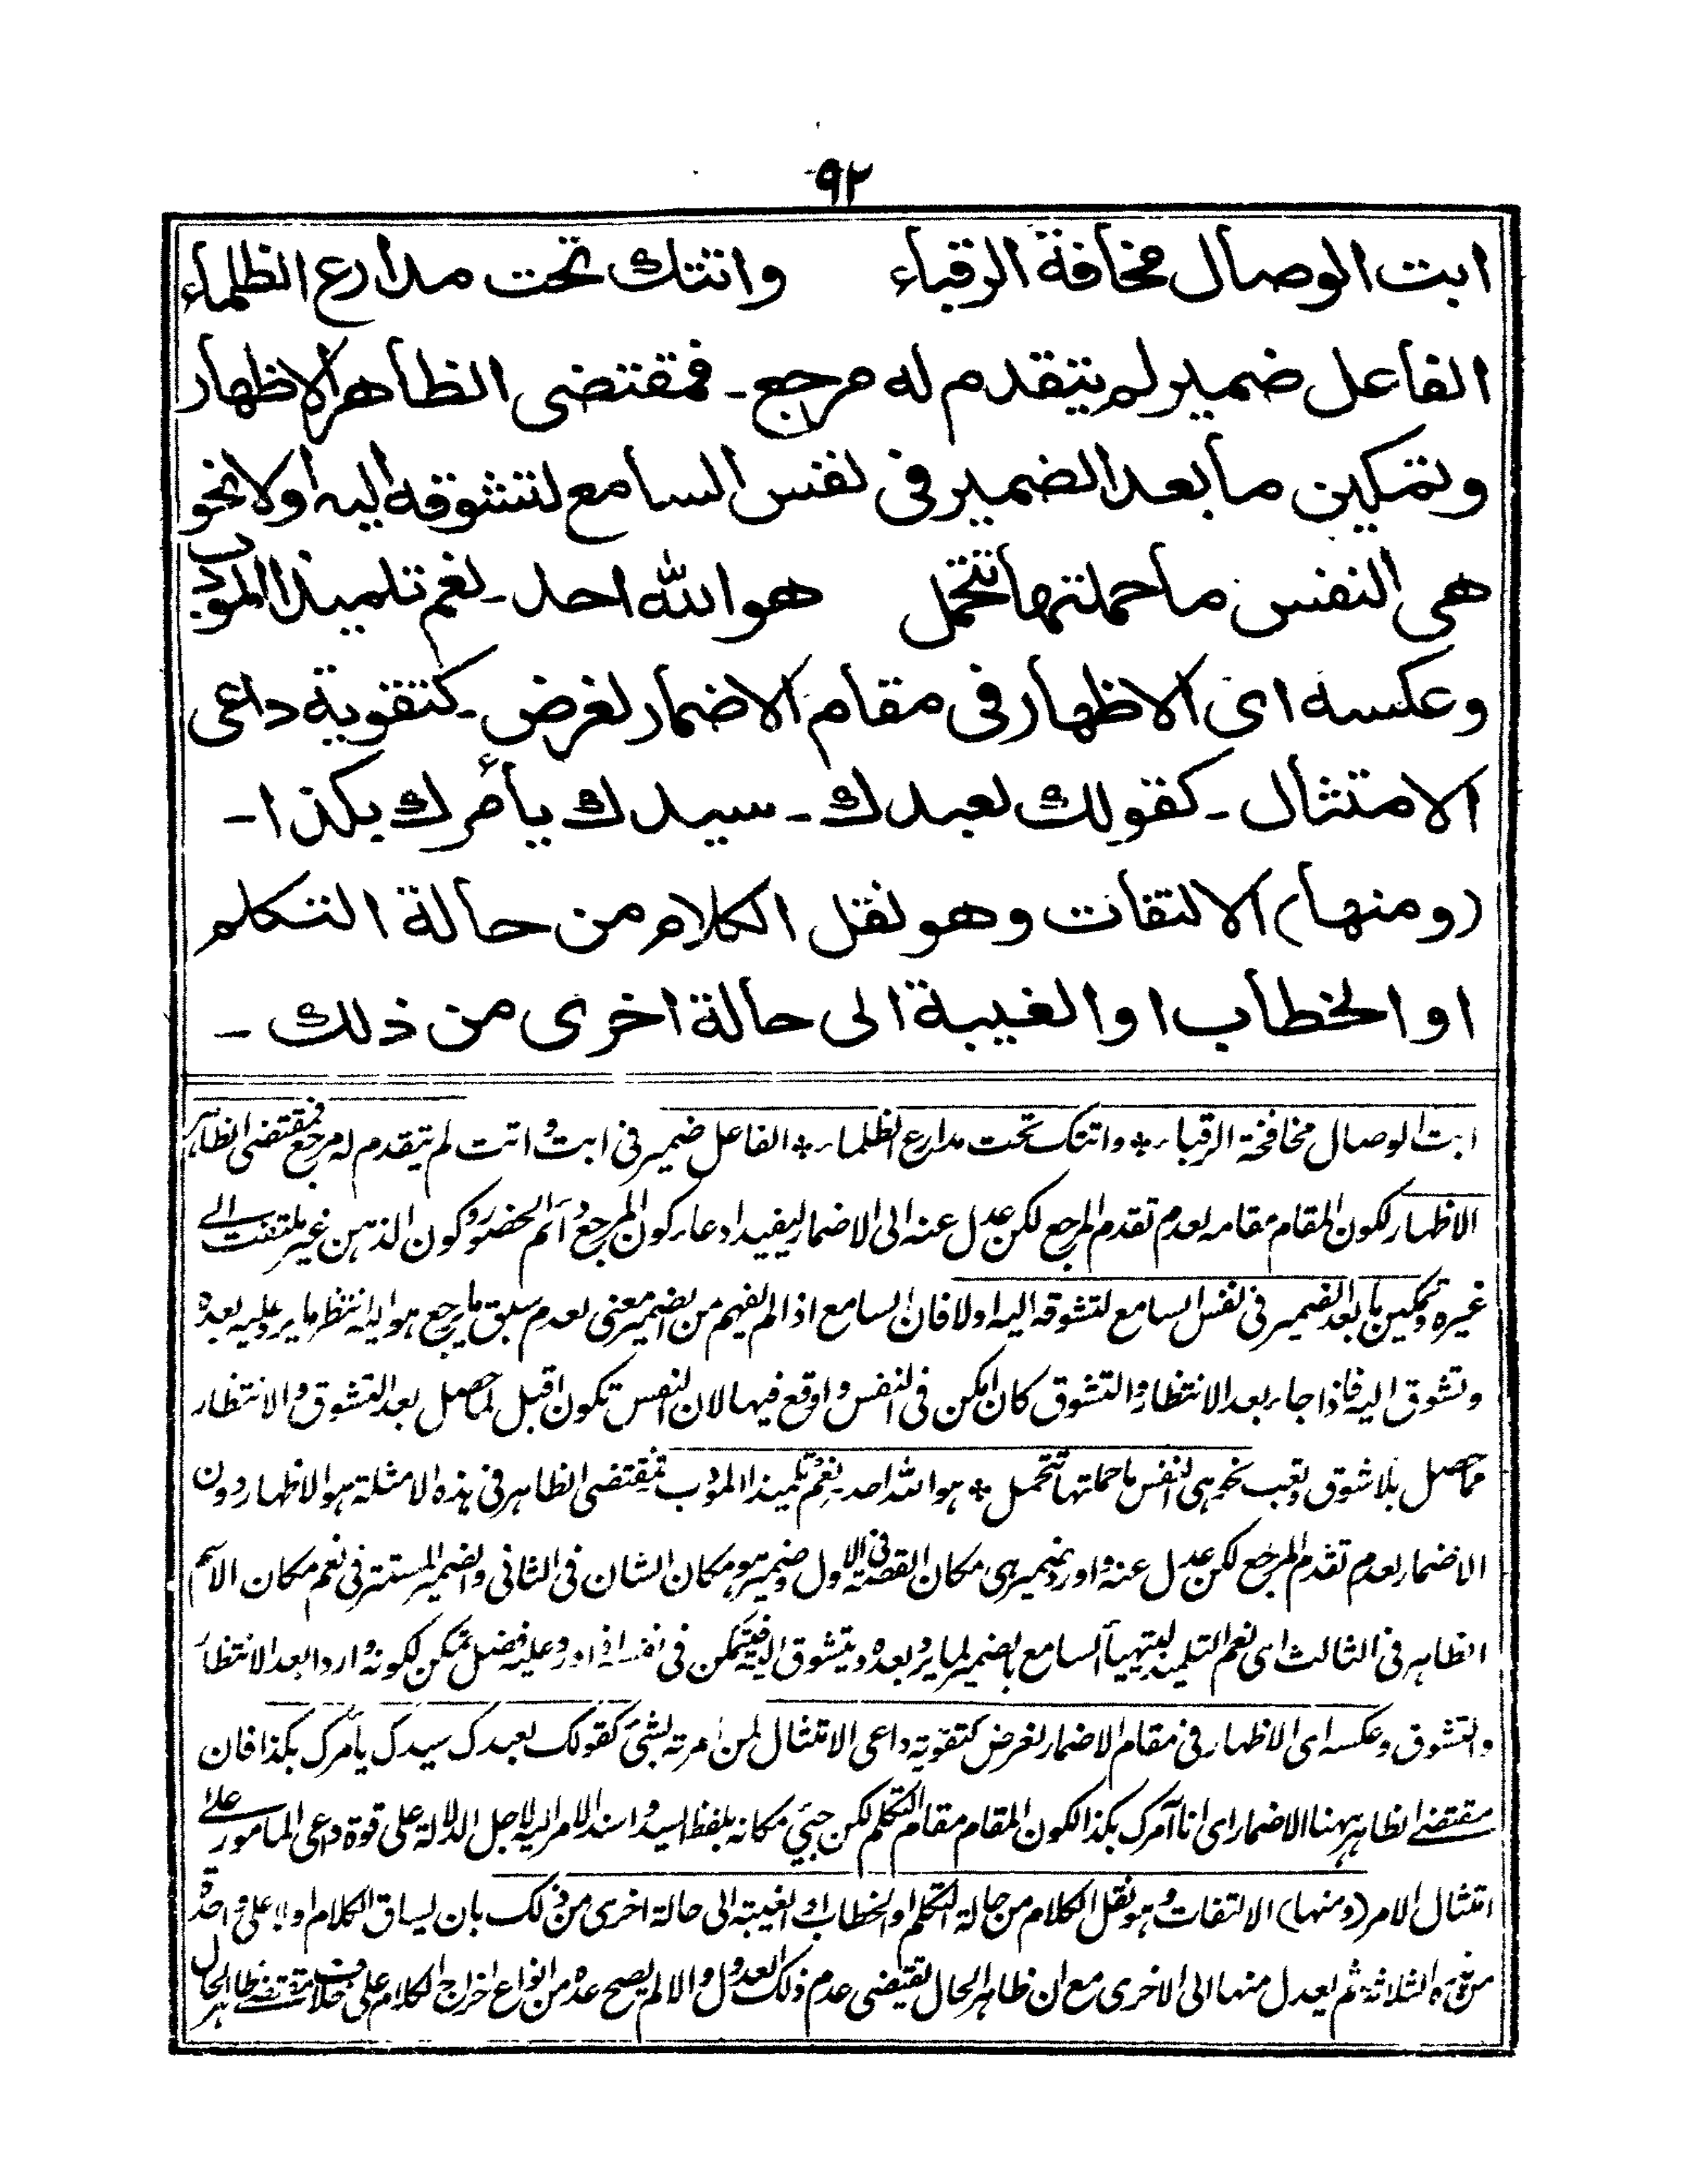 ٩٢
ابت الوصال مخافة الرقباء واتتك تحت مدارع الظلماء
الفاعل ضمير لم يتقدم له مرجع۔ فمقتضى الظاهر الاظهار
وتمكين ما بعد الضمير فى نفس السامع لتشوقه اليه اولا نحو
هى النفس ما حملتها تتحمل هو الله احد۔ نعم تلميذا المؤدب
وعكسه اى الاظهار فى مقام الاضمار لغرض۔ كتقوية داعى
الامتثال۔ كقولك لعبدك۔ سيدك يأمرك بكذا۔
(ومنها) الالتفات وهو نقل الكلام من حالة التكلم
او الخطاب او الغيبة الى حالة اخرى من ذلك۔
ابت الوصال مخافة الرقباء * واتتك تحت مدارع الظلماء * الفاعل ضمير فى ابت واتت لم يتقدم له مرجع فمقتضى الظاهر
الاظهار لكون المقام مقامه لعدم تقدم المرجع لكن عدل عنه الى الاضمار ليفيد ادعاء كون المرجع دائم الحضور وكون الذهن غير ملتفت الى
غيره وتمكين ما بعد الضمير فى نفس السامع لتشوقه اليه اولا فان السامع اذا لم يفهم من الضمير معنى لعدم سبق ما يرجع هو اليه انتظر ما يرد عليه بعده
وتشوق اليه فاذا جاء بعد الانتظار والتشوق كان امكن فى النفس واوقع فيها لان النفس تكون اقبل لما حصل بعد التشوق والانتظار
مما حصل بلا شوق وتعب نحو هى النفس ما حملتها تتحمل * هو الله احد نعم تلميذا المؤدب فمقتضى الظاهر فى هذه الامثلة هو الاظهار دون
الاضمار لعدم تقدم المرجع لكن عدل عنه واورد ضمير هى مكان القصة فى الاول وضمير هو مكان الشان فى الثانى والضمير المستتر فى نعم مكان الاسم
الظاهر فى الثالث اى نعم التلميذ ليتهيأ السامع بالضمير لما يرد بعده ويتشوق اليه فيتمكن فى نفسه اذا ورد عليه فضل تمكن لكونه واردا بعد الانتظار
والتشوق وعكسه اى الاظهار فى مقام الاضمار لغرض كتقوية داعى الامتثال لمن امرته بشئ كقولك لعبدك سيدك يأمرك بكذا فان
مقتضى الظاهر ههنا الاضمار اى انا آمرك بكذا لكون المقام مقام التكلم لكن جيئ مكانه بلفظ السيد واسند الامر اليه لاجل الدلالة على قوة داعى المامور على
امتثال الامر (ومنها) الالتفات وهو نقل الكلام من حالة التكلم او الخطاب او الغيبة الى حالة اخرى من ذلك بان يساق الكلام اولا على واحدة
من هذه الثلاثة ثم يعدل منها الى الاخرى مع ان ظاهر الحال يقتضى عدم ذلك العدول والا لم يصح عده من انواع اخراج الكلام على خلاف مقتضى ظاهر الحال